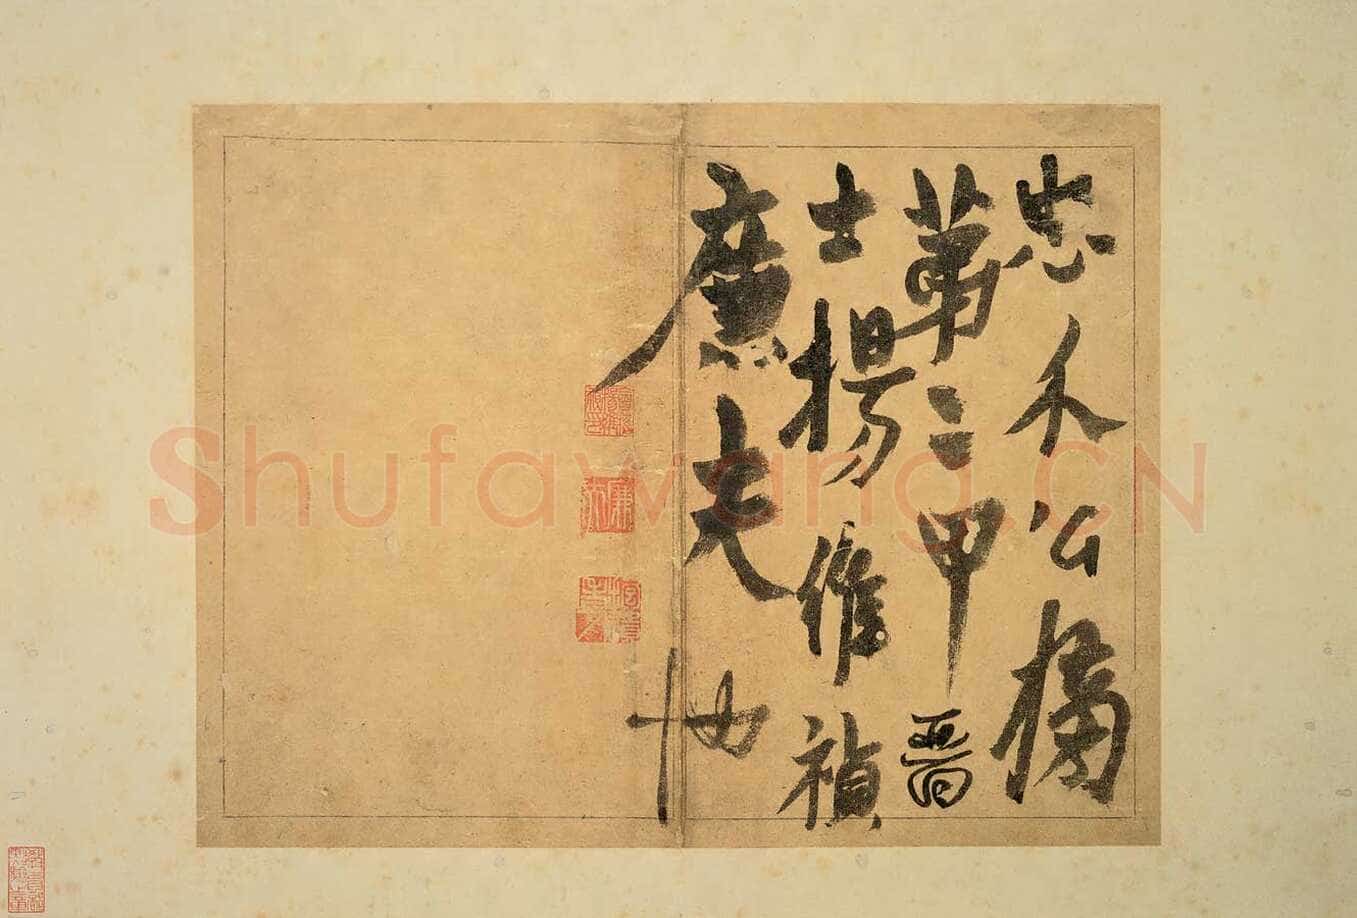 忠介公榜
第二甲晉
士楊維禎
廉夫
廉夫
Shufawang.CN